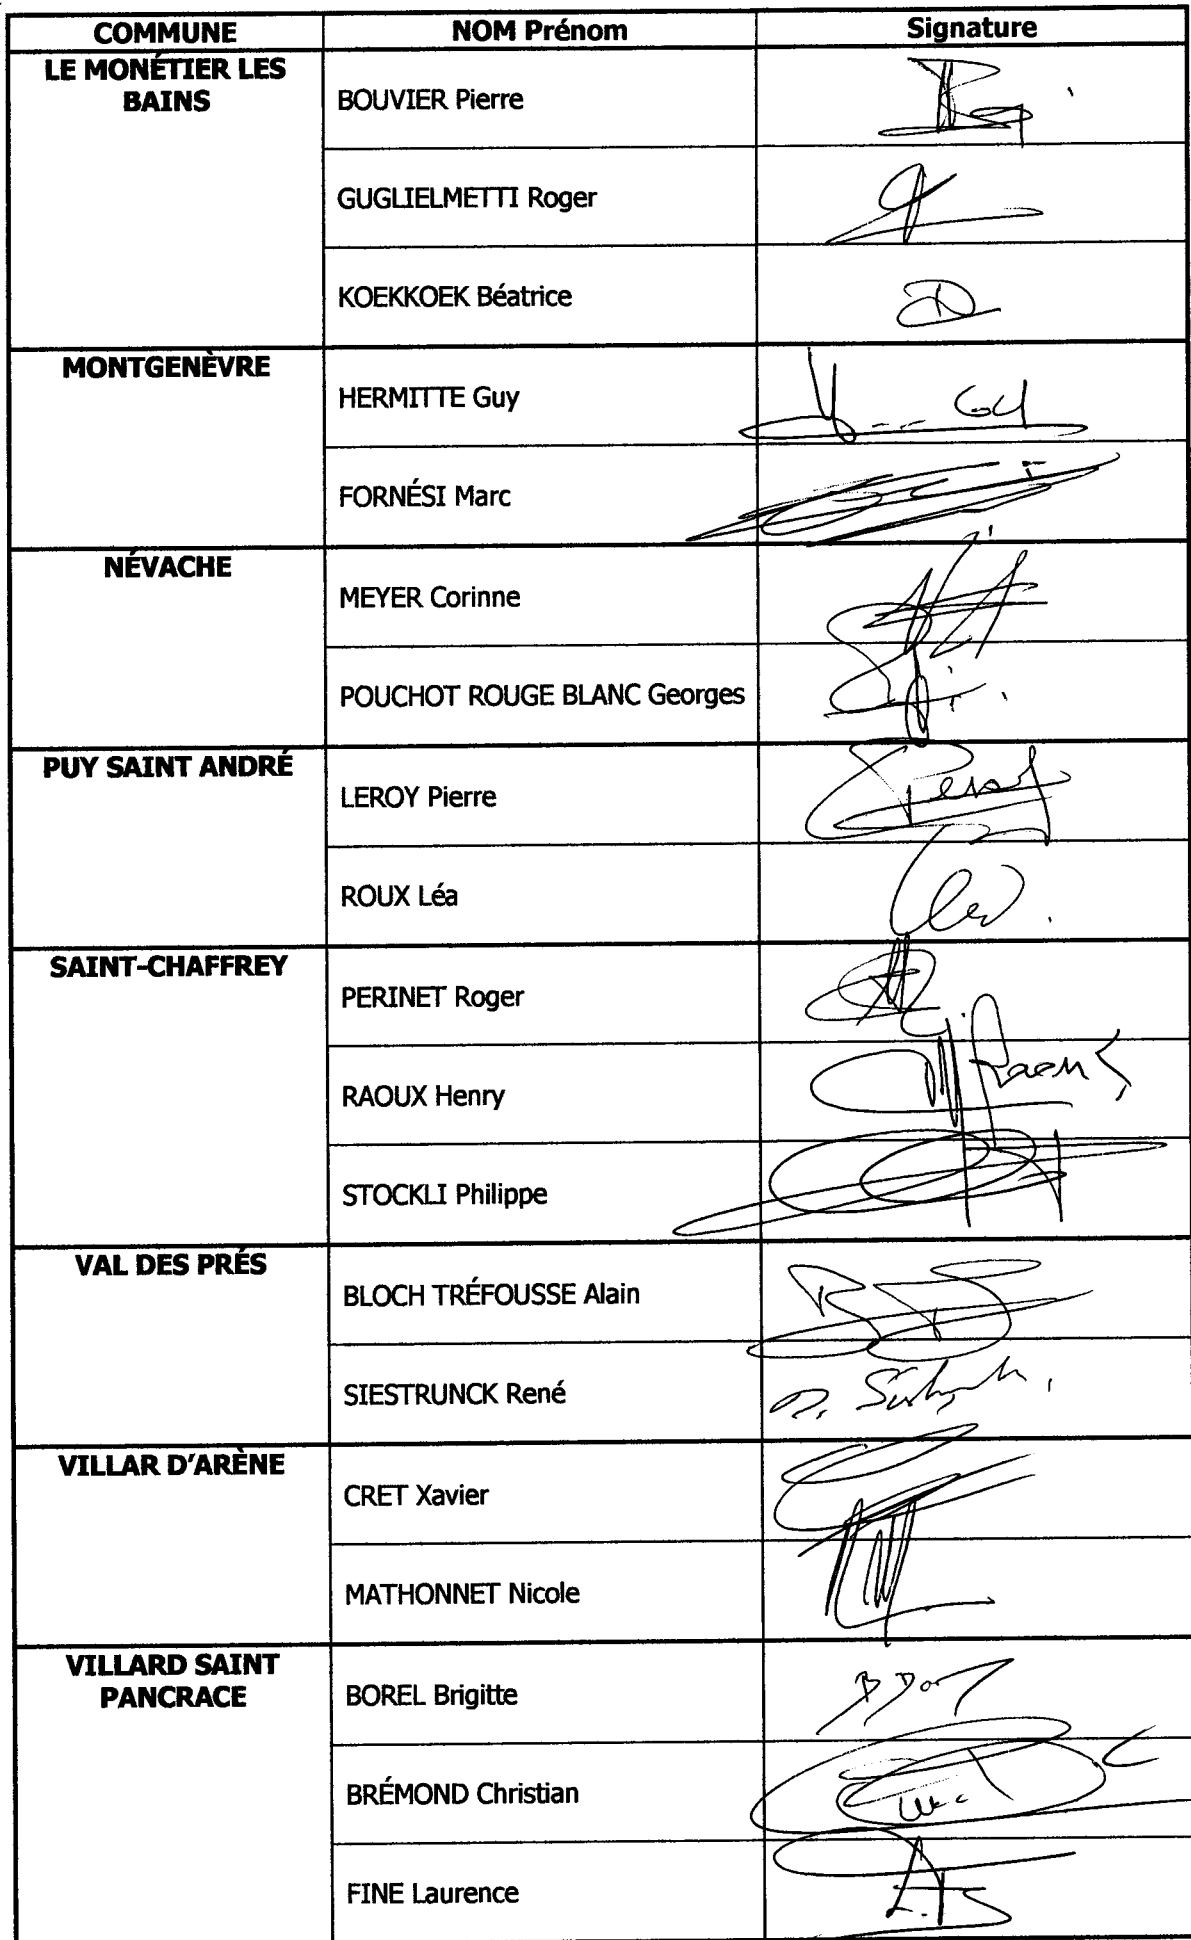 COMMUNE NOM Prénom Signature
LE MONÉTIER LES
BAINS
BOUVIER Pierre
GUGLIELMETTI Roger
KOEKKOEK Béatrice
MONTGENÈVRE
HERMITTE Guy
FORNÉSI Marc
NÉVACHE
MEYER Corinne
POUCHOT ROUGE BLANC Georges
PUY SAINT ANDRÉ
LEROY Pierre
ROUX Léa
SAINT-CHAFFREY
PERINET Roger
RAOUX Henry
STOCKLI Philippe
VAL DES PRÉS
BLOCH TRÉFOUSSE Alain
SIESTRUNCK René
VILLAR D'ARÈNE
CRET Xavier
MATHONNET Nicole
VILLARD SAINT
PANCRACE
BOREL Brigitte
BRÉMOND Christian
FINE Laurence